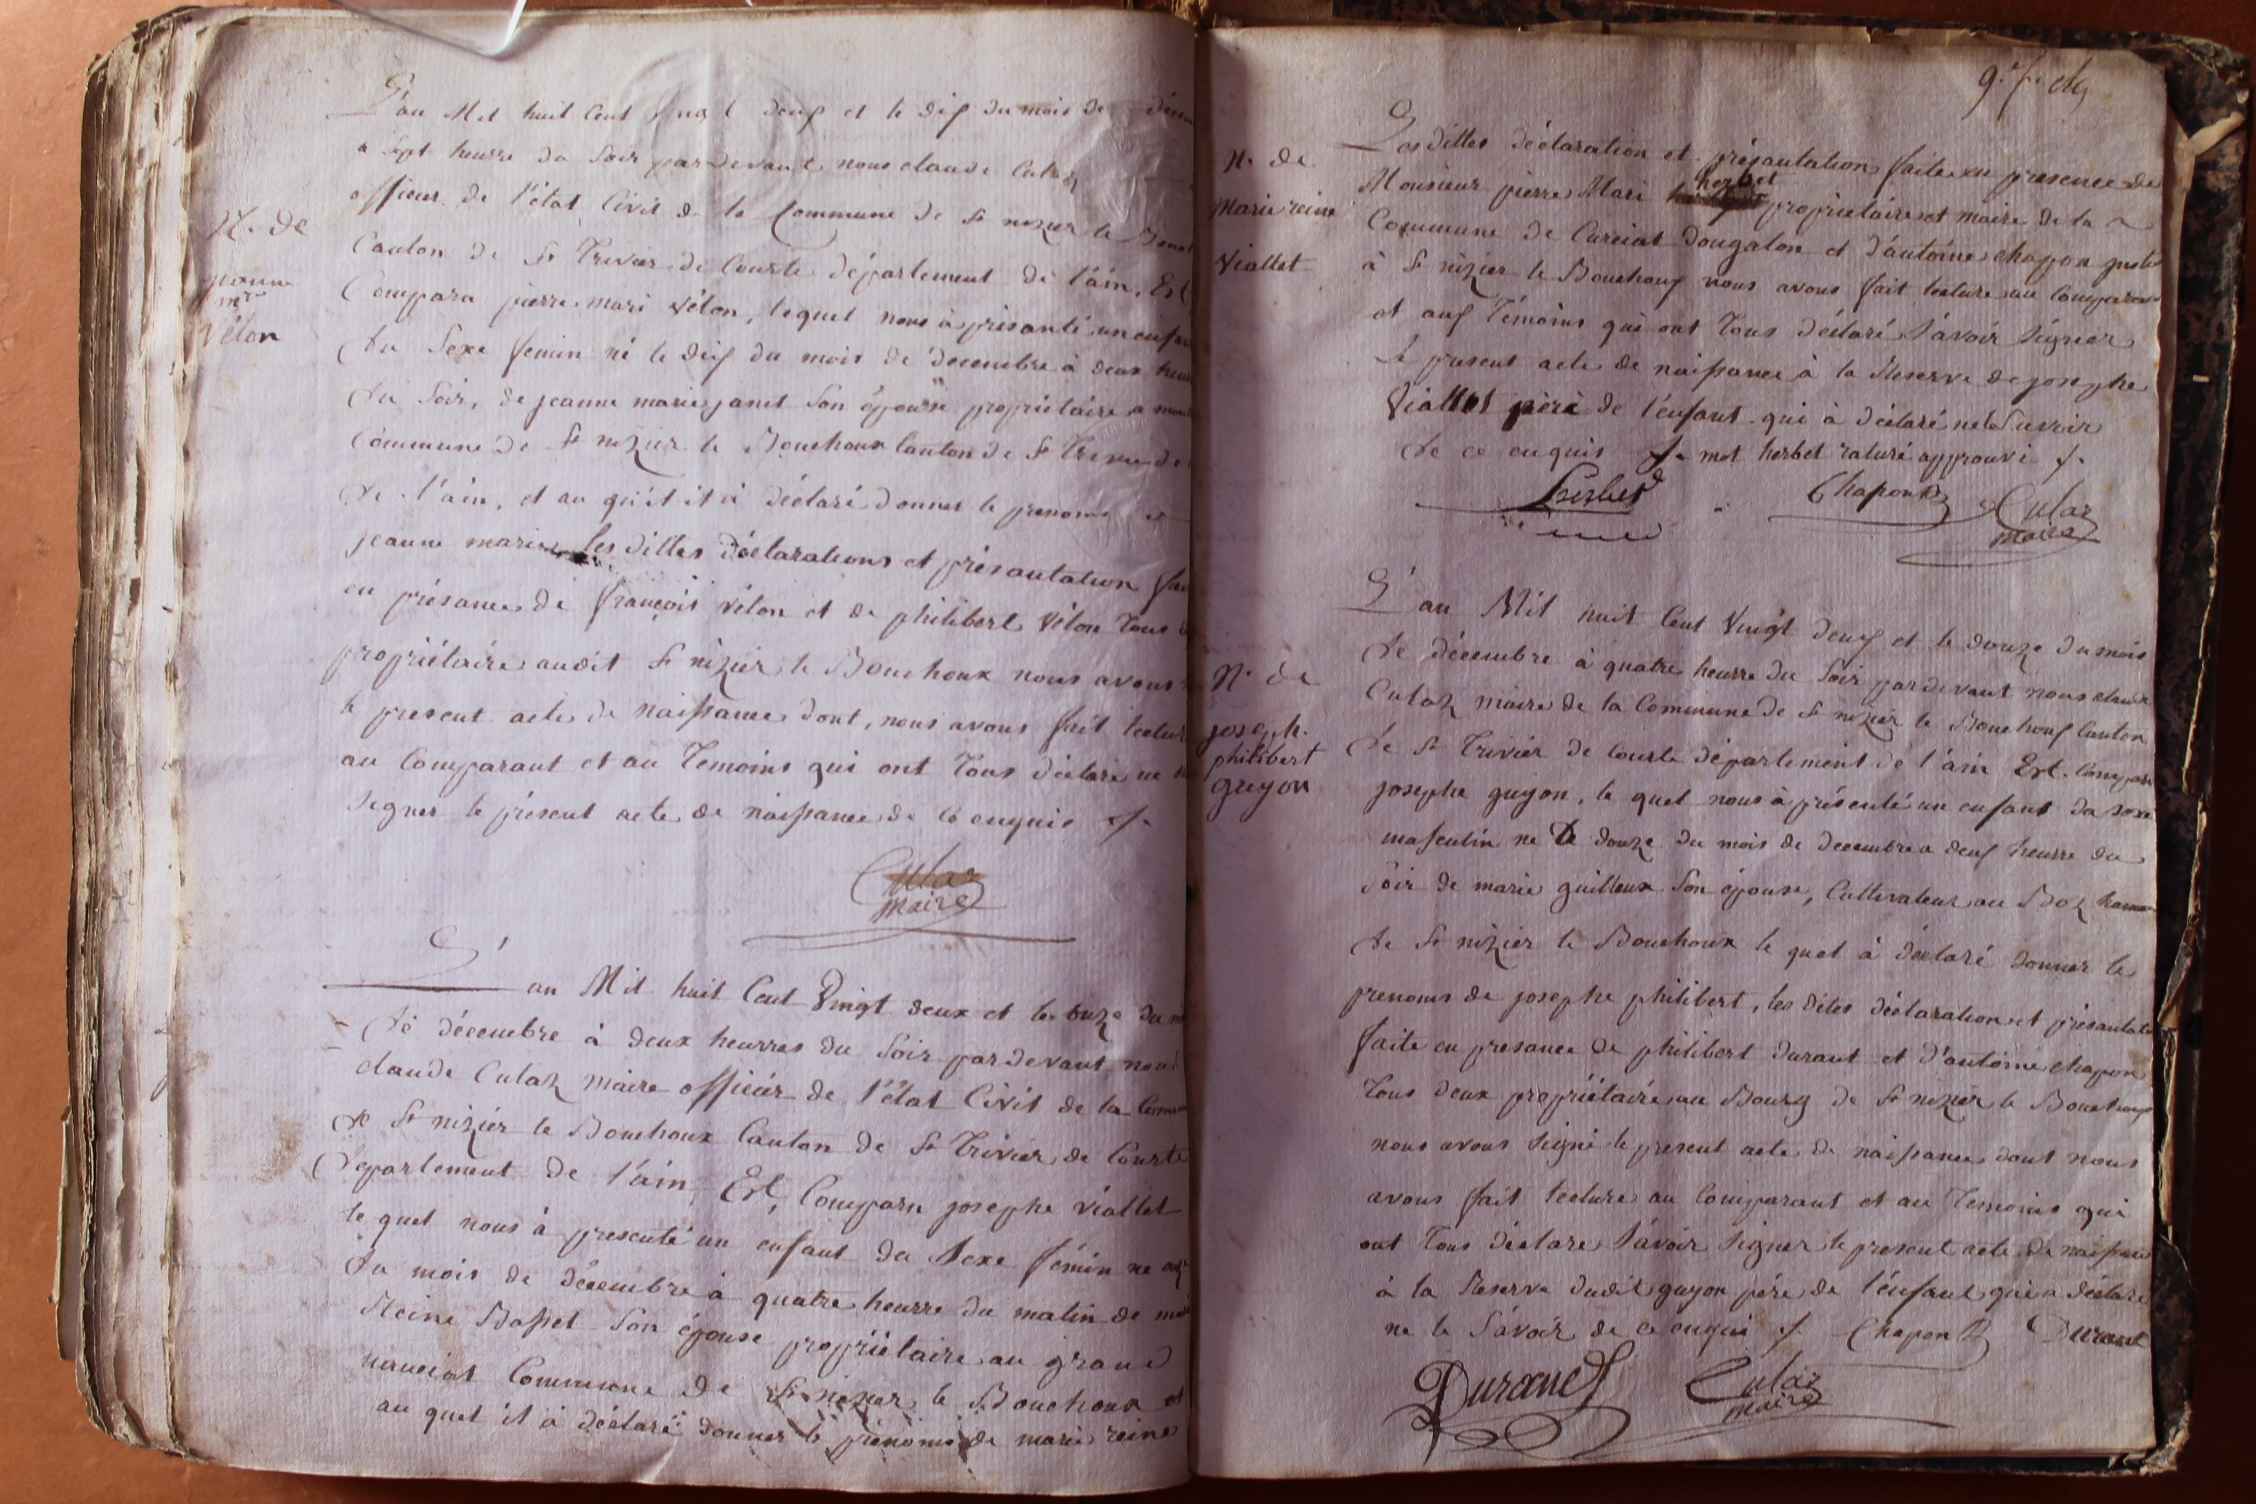 N. de
jeanne
mie
Vélon
L'an Mil huit Cent vingt deux et le dix du mois de décem
a Sept heurre du Soir pardevant nous claude Culaz
officier de l'état Civil de la Commune de St nizier le Bouch
Canton de St Trivier de Courte département de l'ain, Est
Comparu pierre mari vélon, lequel nous à présanté un enfan
du Sexe femin né le dix du mois de decembre à deux heur
du Soir, de jeanne marie janet Son épouse propriétaire a
Commune de St nizier le Bouchoux Canton de St Trivier de
de l'ain, et au qu'il it à déclaré donner le prenoms
jeanne marie, les dittes déclarations et présantation fai
en présance de françois vélon et de philibert vélon Tous
propriétaire audit St nizier le Bouchoux nous avons
le present acte de naissance dont, nous avons fait lectur
au Comparant et au Temoins qui ont Tous déclaré ne
Segner le présent acte de naissance de Ce enquis
Culaz
maire
L'an Mil huit Cent Vingt deux et le onze du m
de décembre à deux heurres du Soir pardevant nous
claude Culaz maire officiér de l'état Civil de la Comm
de St nizier le Bouchoux Canton de St Trivier de Courte
departement de l'ain, Est, Comparu josephe viallet
le quel nous à presenté un enfant du Sexe fémin ne onze
du mois de décembre à quatre heurre du matin de mari
Reine Basset Son épouse propriétaire au grand
nanciat Commune de St nizier le Bouchoux et
au quel il à déclaré donner le prenoms de marie reine
N. de
Marie reine
Viallet
Les dittes déclaration et présantation faite en presence de
Monsieur pierre Mari herbet propriétaire et maire de la
Commune de Curciat Dongalon et d'antoine chapon
à St nizier le Bouchoux nous avons fait lecture au Comparant
et aux Témoins qui ont Tous déclaré Sávoir Signer
le present acte de naissance à la Reserve de josephe
Viallet pére de l'enfant qui à déclaré ne le Savoir
de ce enquis mot herbet raturé approuvé
herbet
Chapon
Culaz
maire
N. de
joseph
philibert
guyon
L'an Mil huit Cent Vingt deux et le douze du mois
de décembre à quatre heurre du Soir pardevant nous claude
Culaz maire de la Commune de St nizier le Bouchoux Canton
de St Trivier de Courte département de l'ain Est Compar
josephe guyon, le quel nous à présenté un enfant du sexe
masculin ne le douze du mois de decembre a deux heurre du
Soir de marie guilleux Son épouse, Cultivateur au Boz hamau
de St nizier le Bouchoux le quel à déclaré donner le
prenoms de josephe philibert, les dites déclaration et présantati
faite en presance de philibert durant et d'antoine chapon
Tous deux propriétaire au Bourg de St nizier le Bouchoux
nous avons Signé le present acte de naissance dont nous
avons fait lecture au Comparant et au Temoins qui
ont Tous déclare Sávoir Signer le present acte de naissance
à la Reserve dudit guyon pére de l'énfant qui a déclaré
ne le Sávoir de ce enquis Chapon Durant
Durand
Culaz
maire